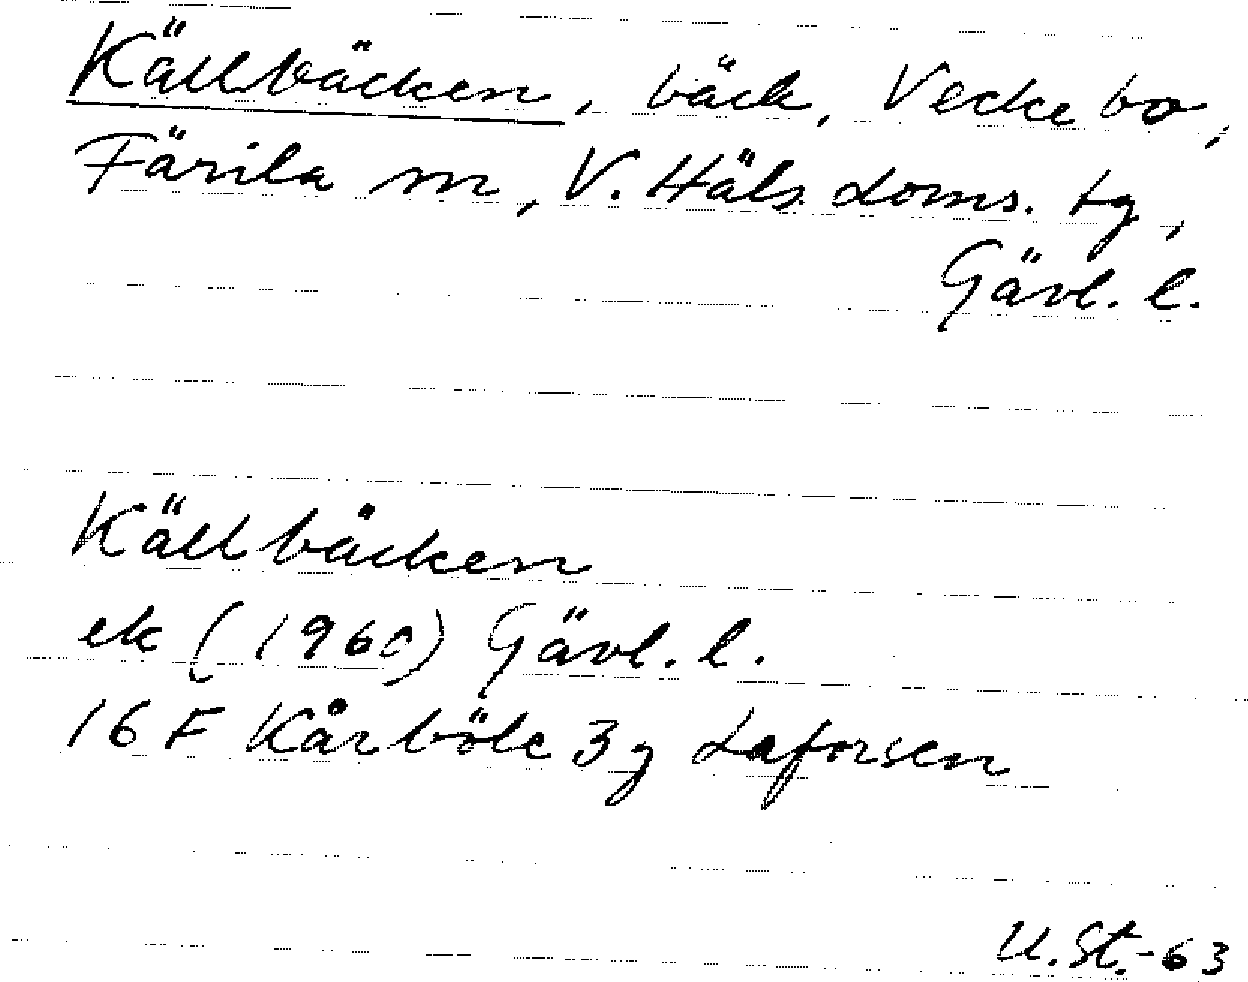 Källbäcken, bäck, Veckebo,
Färila sn, V. Häls. doms. tg,
Gävl. l.
Källbäcken
ek (1960) Gävl. l.
16 F Kårböle 3g Laforsen
U.St.-63